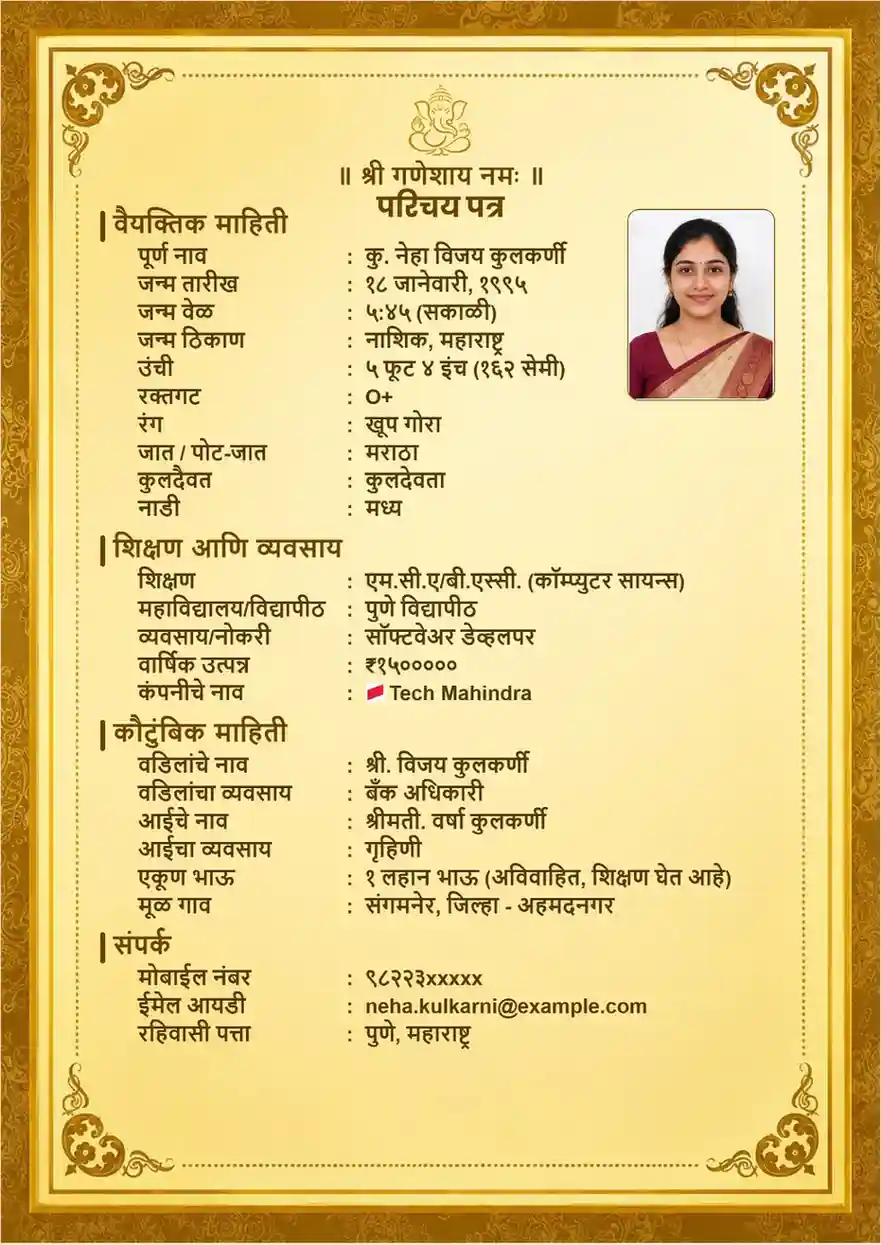 ॥ श्री गणेशाय नमः ॥
परिचय पत्र
वैयक्तिक माहिती
पूर्ण नाव : कु. नेहा विजय कुलकर्णी
जन्म तारीख : १८ जानेवारी, १९९५
जन्म वेळ : ५:४५ (सकाळी)
जन्म ठिकाण : नाशिक, महाराष्ट्र
उंची : ५ फूट ४ इंच (१६२ सेमी)
रक्तगट : O+
रंग : खूप गोरा
जात / पोट-जात : मराठा
कुलदैवत : कुलदेवता
नाडी : मध्य
शिक्षण आणि व्यवसाय
शिक्षण : एम.सी.ए/बी.एस्सी. (कॉम्प्युटर सायन्स)
महाविद्यालय/विद्यापीठ : पुणे विद्यापीठ
व्यवसाय/नोकरी : सॉफ्टवेअर डेव्हलपर
वार्षिक उत्पन्न : ₹१५०००००
कंपनीचे नाव : Tech Mahindra
कौटुंबिक माहिती
वडिलांचे नाव : श्री. विजय कुलकर्णी
वडिलांचा व्यवसाय : बँक अधिकारी
आईचे नाव : श्रीमती. वर्षा कुलकर्णी
आईचा व्यवसाय : गृहिणी
एकूण भाऊ : १ लहान भाऊ (अविवाहित, शिक्षण घेत आहे)
मूळ गाव : संगमनेर, जिल्हा - अहमदनगर
संपर्क
मोबाईल नंबर : ९८२२३xxxxx
ईमेल आयडी : neha.kulkarni@example.com
रहिवासी पत्ता : पुणे, महाराष्ट्र